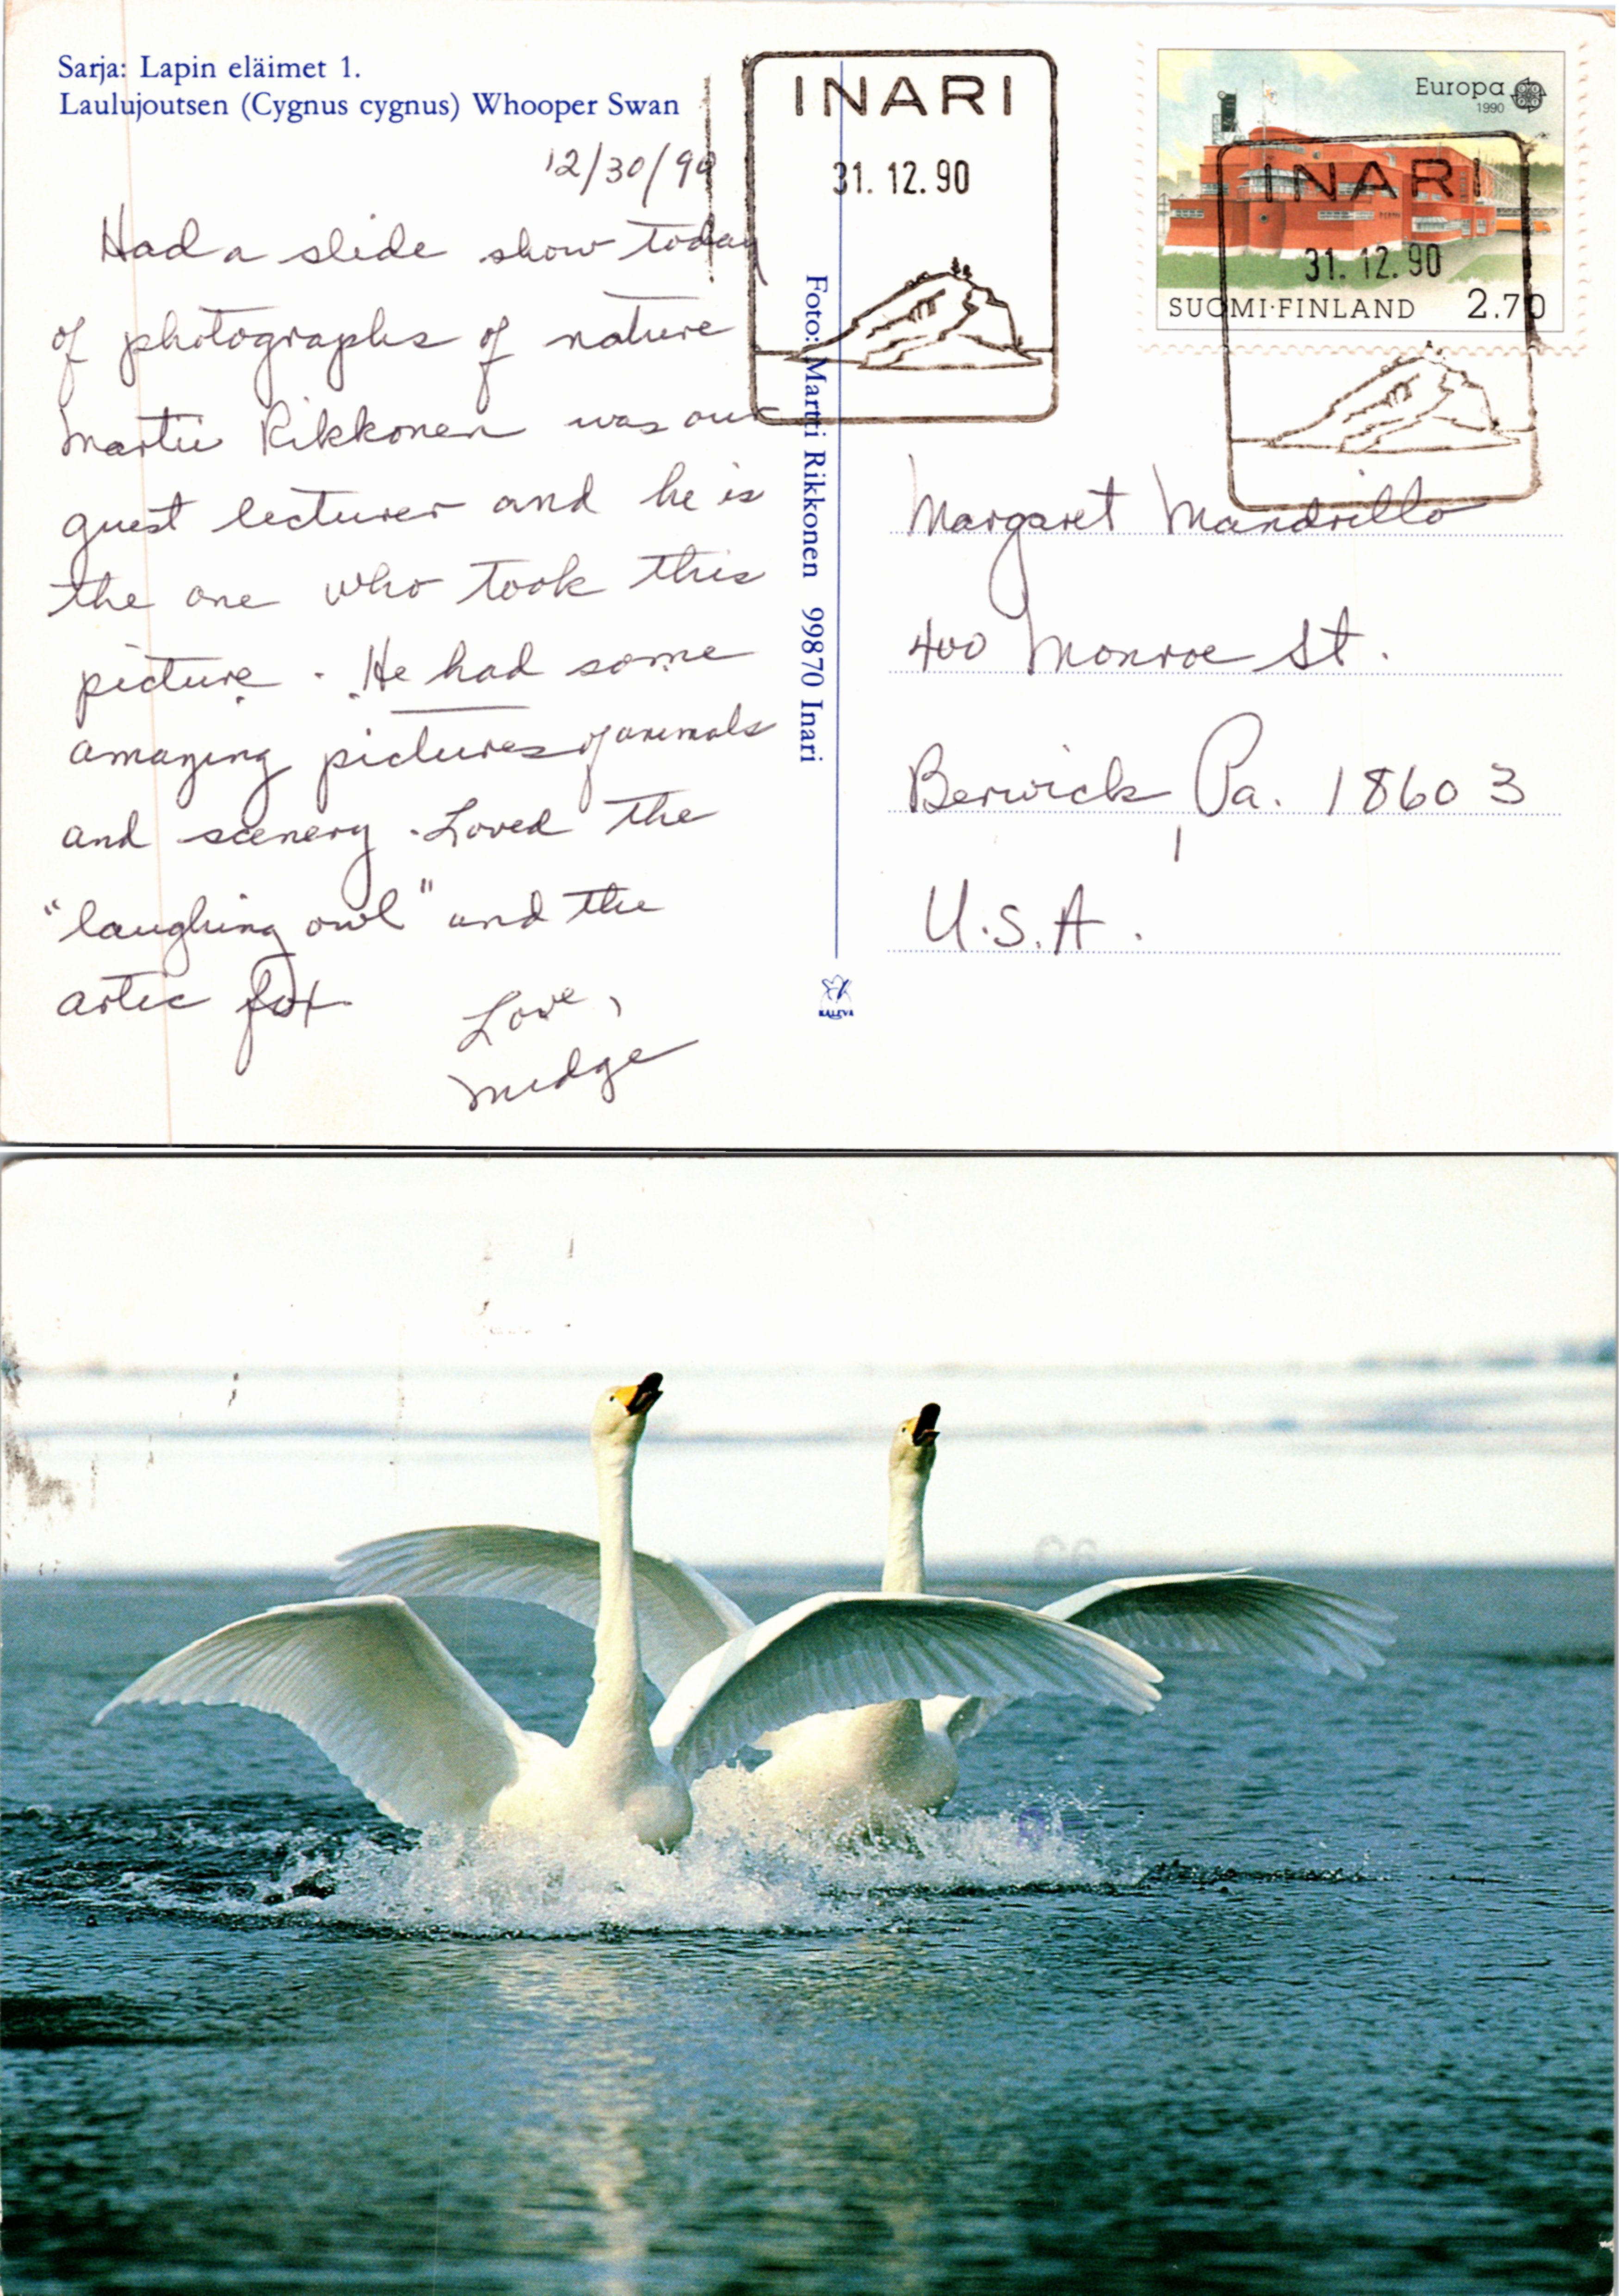 Sarja: Lapin eläimet 1.
Laulujoutsen (Cygnus cygnus) Whooper Swan
12/30/90
Had a slide show today
of photographs of nature
Martii Rikkonen was our
guest lecturer and he is
the one who took this
picture. He had some
amazing pictures of animals
and scenery. Loved the
"laughing owl" and the
artic fox
Love,
Midge
INARI
31.12.90
Foto: Martti Rikkonen 99870 Inari
KALEVA
Europa
1990
SUOMI·FINLAND 2.70
INARI
31.12.90
Margaret Mandrillo
400 Monroe St.
Berwick, Pa. 18603
U.S.A.